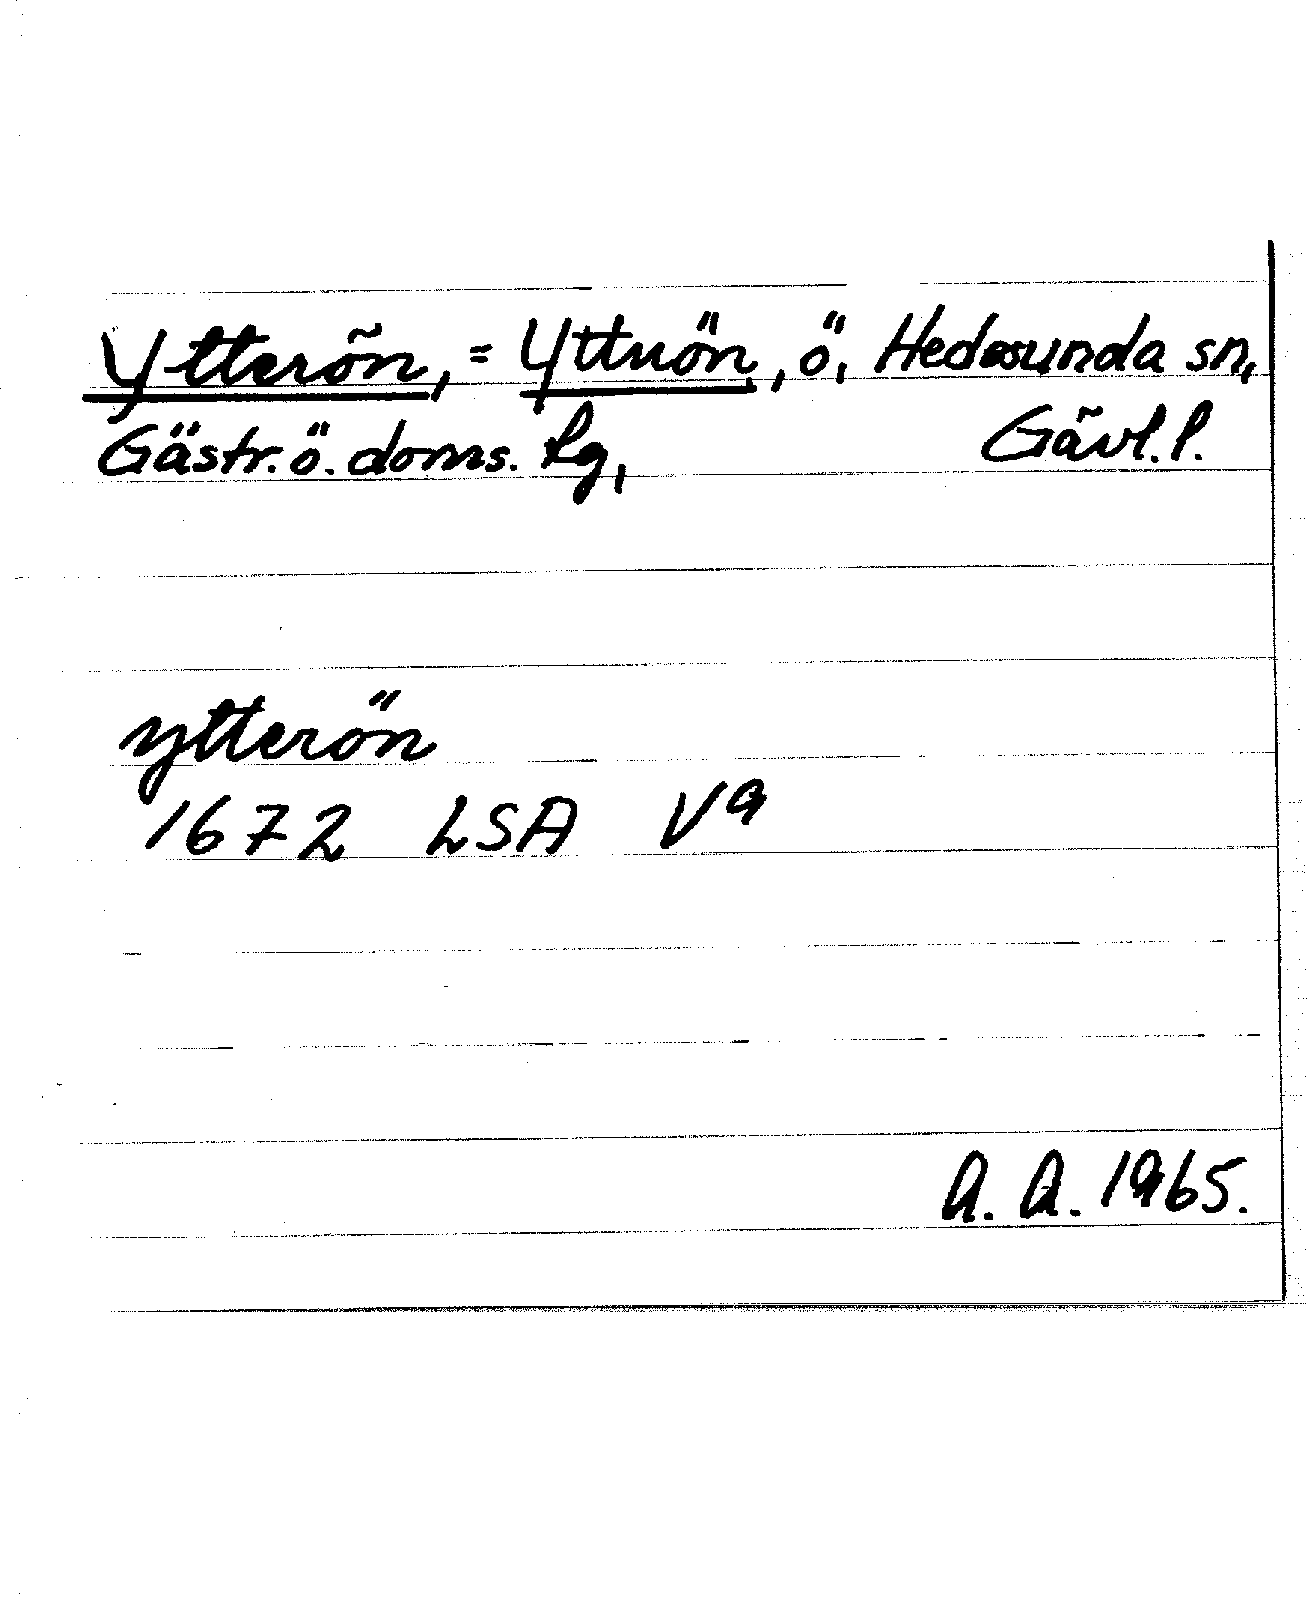 Ytterön, = Yttuön, ö, Hedesunda sn,
Gästr. ö. doms. lg, Gävl. l.
ytterön
1672 LSA V9
A. A. 1965.